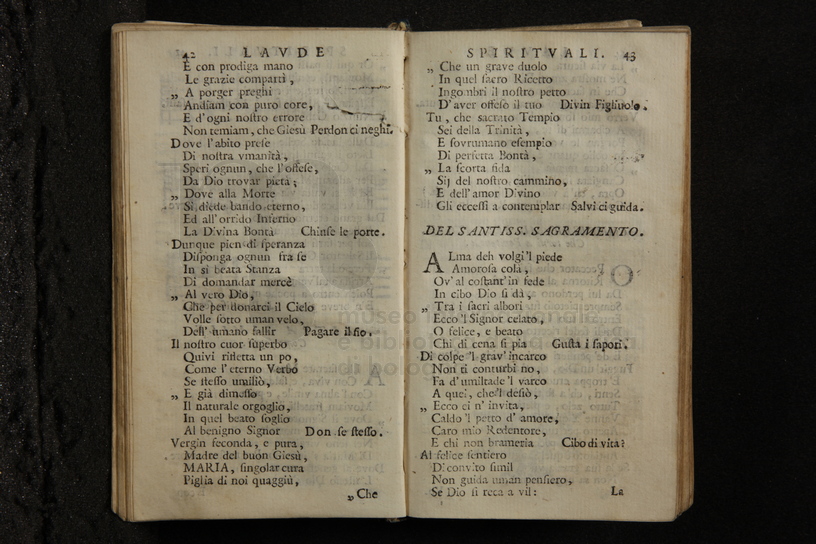 42 LAVDE
E con prodiga mano
Le grazie comparti,
„ A porger preghi
Andiam con puro core,
E d'ogni nostro errore
Non temiam, che Giesù Perdon ci neghi.
Dove l'abito prese
Di nostra vmanità,
Speri ognun, che l'offese,
Da Dio trovar pietà;
„ Dove alla Morte
Si diede bando eterno,
Ed all'orrido Inferno
La Divina Bontà Chiuse le porte.
Dunque pien di speranza
Disponga ognun fra se
In si beata Stanza
Di domandar mercè
„ Al vero Dio,
Che per donarci il Cielo
Volle sotto uman velo,
Dell' umano fallir Pagare il fio.
Il nostro cuor superbo
Quivi rifletta un po,
Come l'eterno Verbo
Se stesso umiliò,
„ E già dimesso
Il naturale orgoglio,
In quel beato soglio
Al benigno Signor Don se stesso.
Vergin feconda, e pura,
Madre del buon Giesù,
MARIA, singolar cura
Piglia di noi quaggiù,
„ Che
SPIRITVALI. 43
„ Che un grave duolo
In quel sacro Ricetto
Ingombri il nostro petto
D'aver offeso il tuo Divin Figliuolo.
Tu, che sacrato Tempio
Sei della Trinità,
E sovrumano esempio
Di perfetta Bontà,
„ La scorta fida
Sij del nostro cammino,
E dell'amor Divino
Gli eccessi a contemplar Salvi ci guida.
DEL SANTISS. SAGRAMENTO.
ALma deh volgi'l piede
Amorosa colà,
Ov'al costant'in fede
In cibo Dio si dà,
„ Tra i sacri albori
Ecco'l Signor celato,
O felice, e beato
Chi di cena sì pia Gusta i sapori.
Di colpe'l grav'incarco
Non ti conturbi nò,
Fa d'umiltade'l varco
A quei, che'l desiò,
„ Ecco ci n'invita,
Caldo'l petto d'amore,
Caro mio Redentore,
E chi non brameria Cibo di vita?
Al felice sentiero
Di convito simil
Non guida uman pensiero,
Se Dio si reca a vil: La